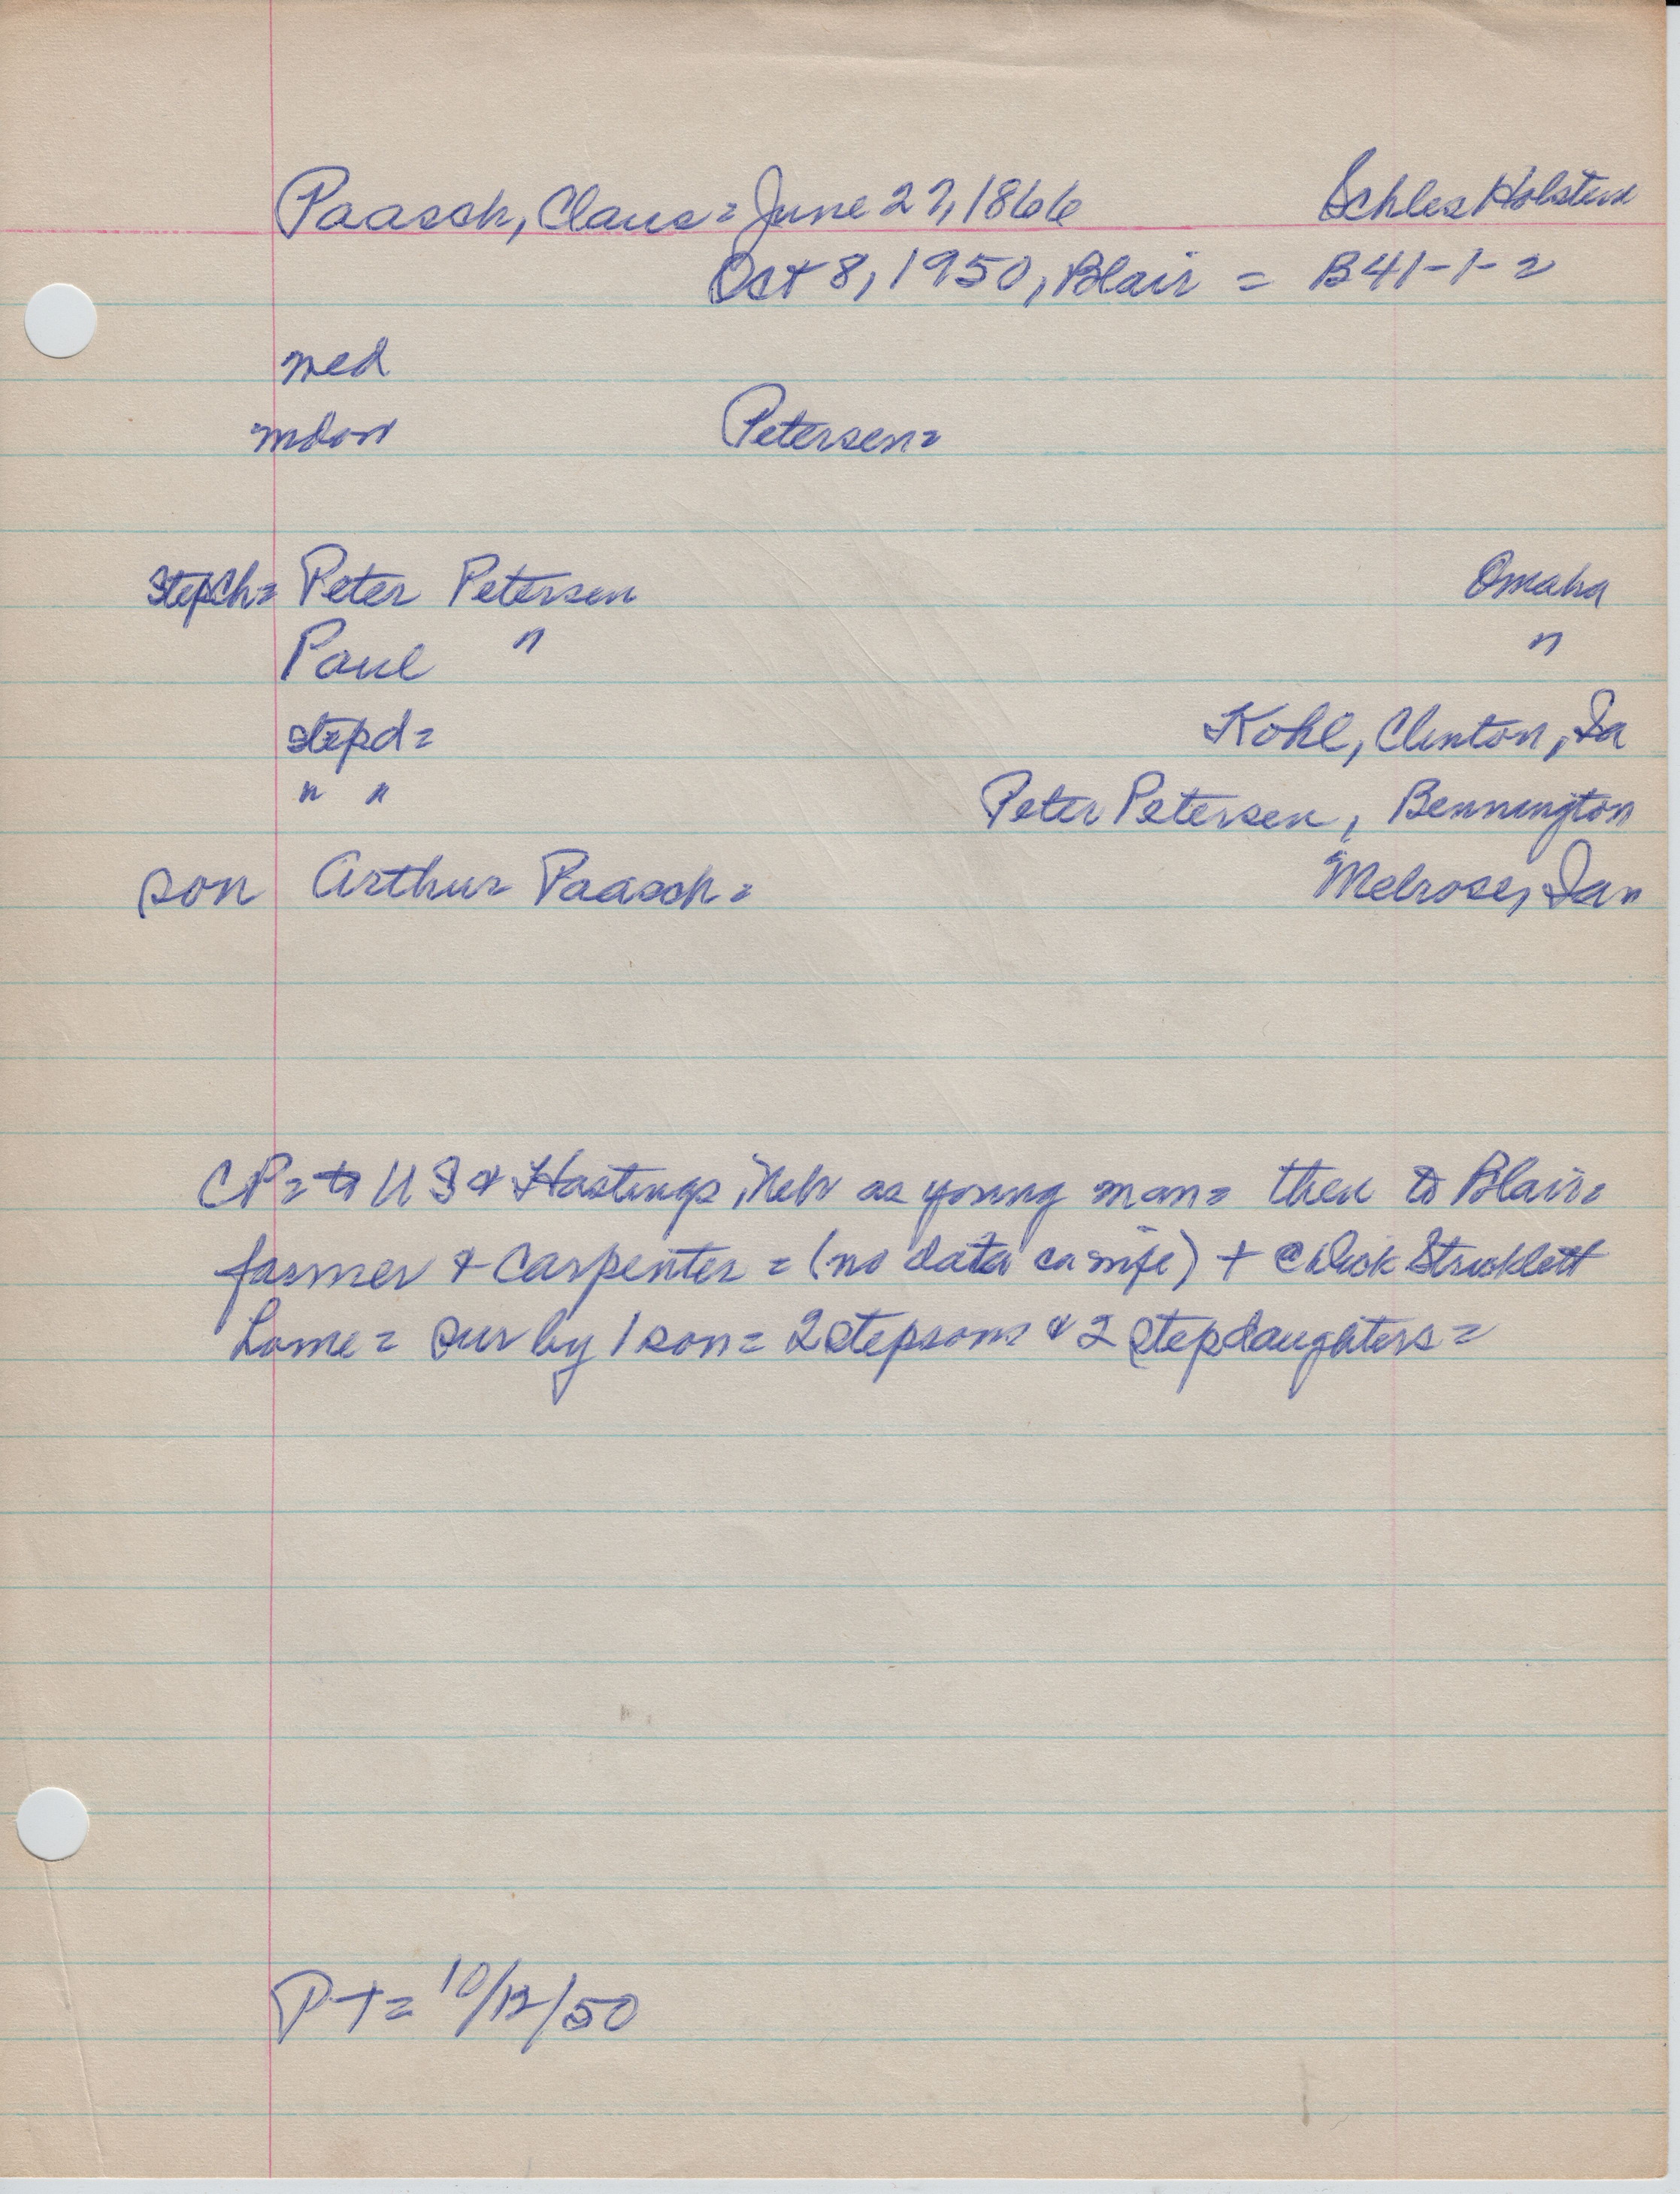 Paasch, Claus = June 27, 1866 Schles Holstein
Oct 8, 1950, Blair = B41-1-2
med
mdon Petersen=
StepCh= Peter Petersen Omaha
Paul " "
stepd= Kohl, Clinton, Ia
" " Peter Petersen, Bennington
son Arthur Paasch= Melrose, Ian
CP= to US & Hastings, Neb as young man= then to Blair=
farmer & carpenter = (no data on wife) + @ Dick Stricklett
home = sur by 1 son= 2 stepsons & 2 stepdaughters=
PT= 10/12/50